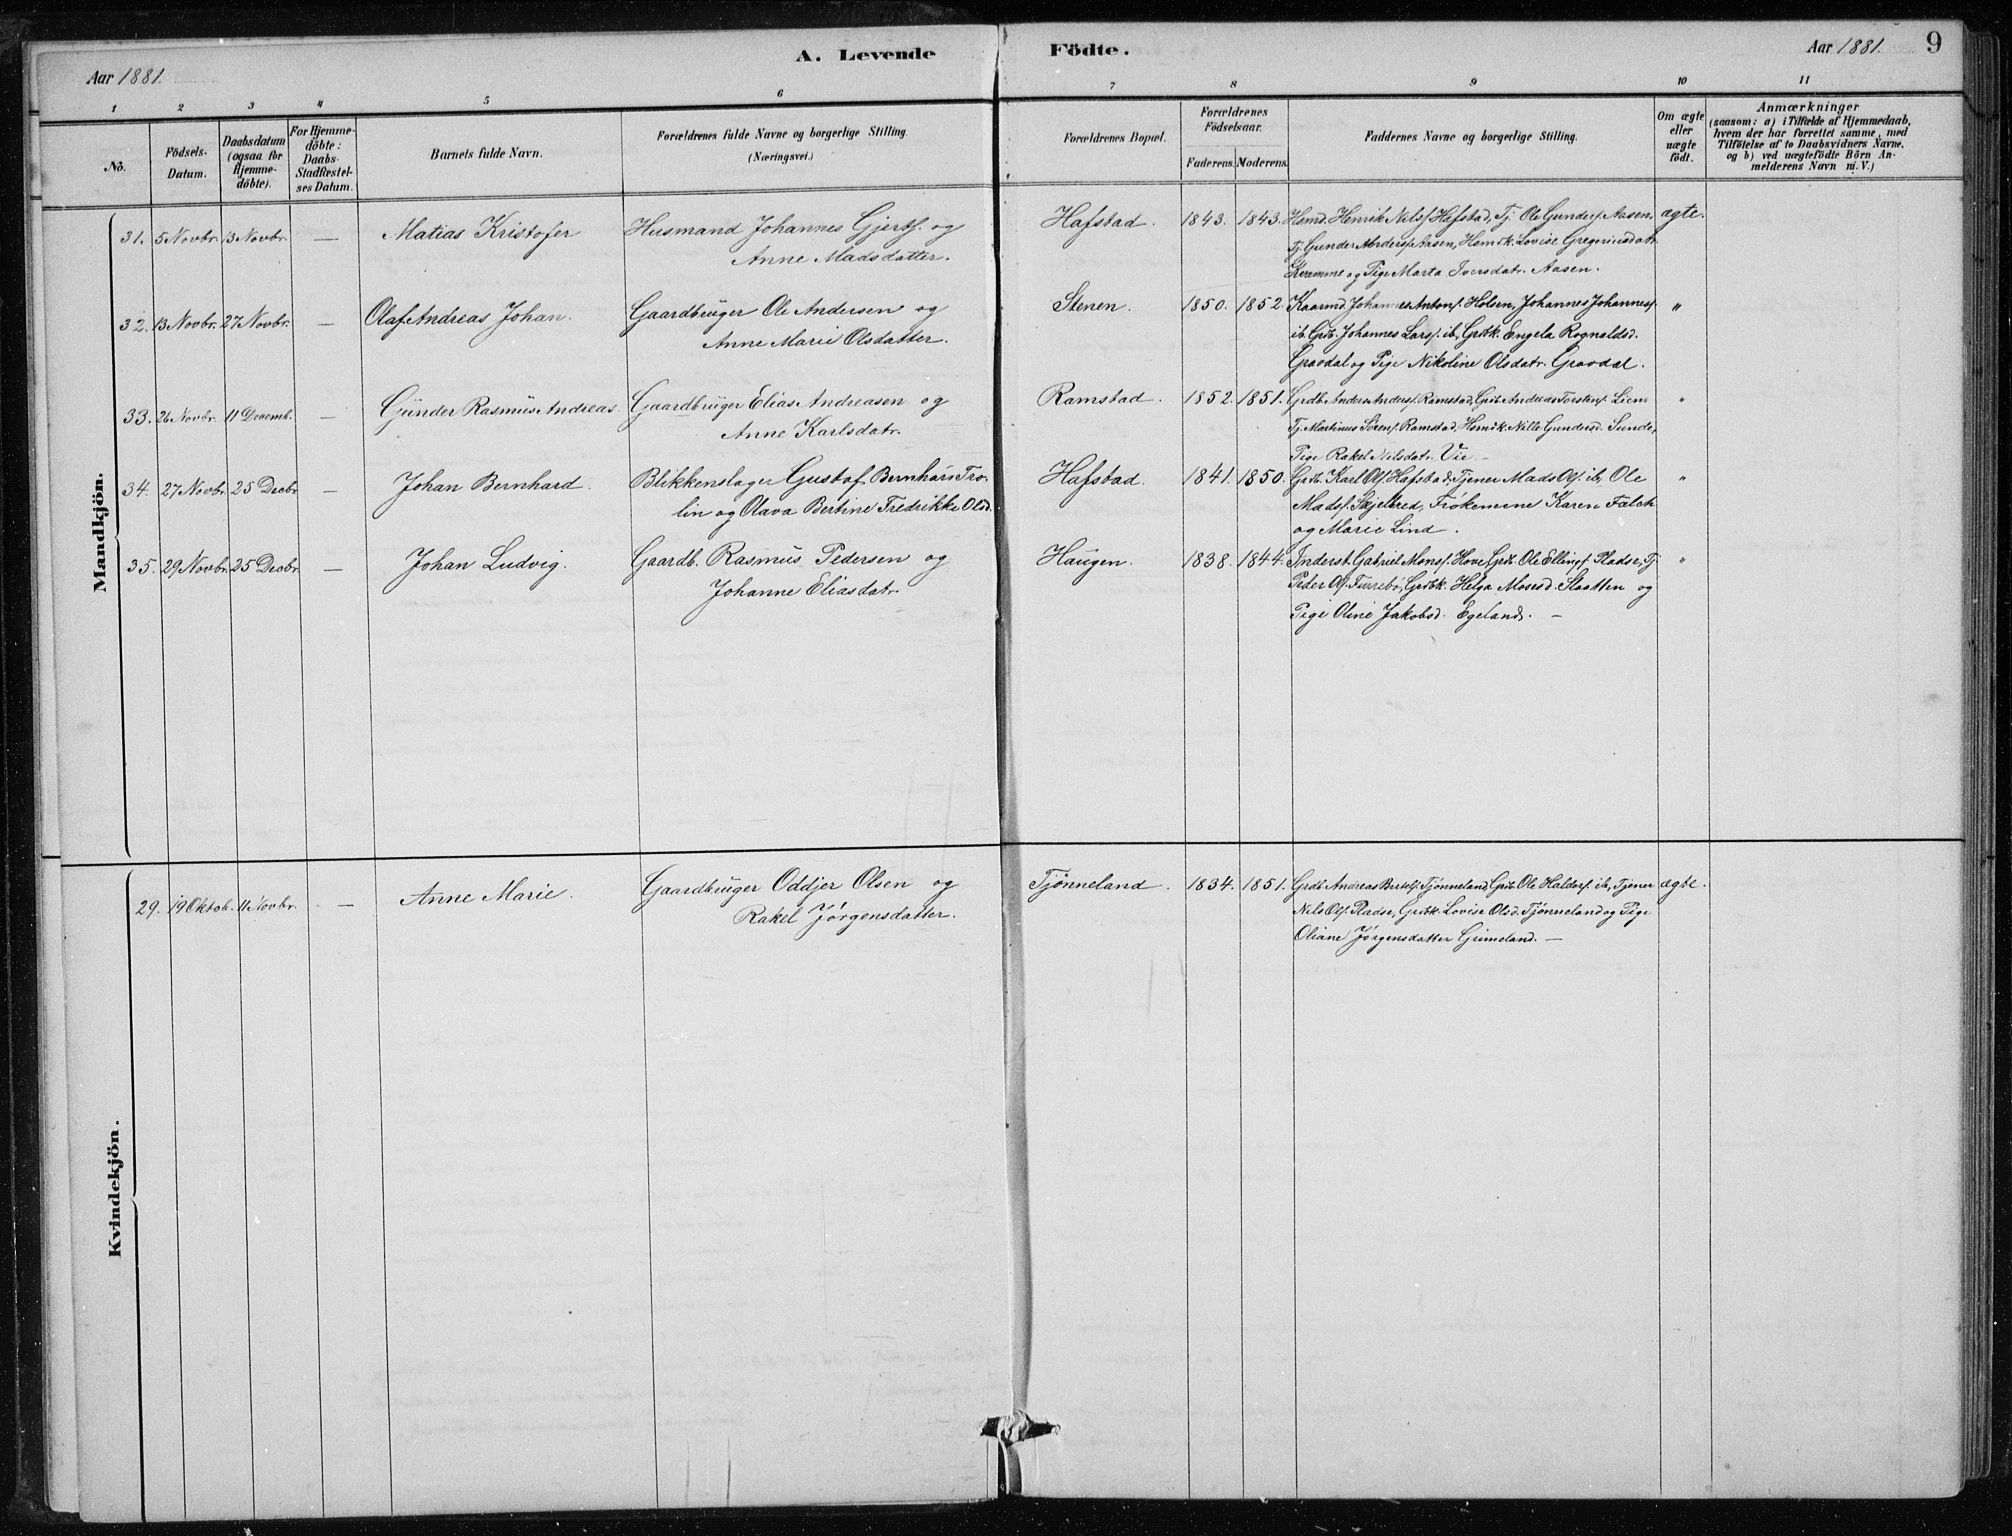 A. Levende Födte.
Aar 1881.
Aar 1881. 9
1 2 3 4 5 6 7 8 9 10 11
No.
Födsels-
Datum.
Daabsdatum
(ogsaa for
Hjemme-
döbte).
For Hjemme-
döbte:
Daabs-
Stadfæstel-
ses Datum.
Barnets fulde Navn.
Forældrenes fulde Navne og borgerlige Stilling.
(Næringsvei.)
Forældrenes Bopæl.
Forældrenes
Födselsaar.
Faderens. Moderens.
Faddernes Navne og borgerlige Stilling.
Om ægte
eller
uægte
født.
Anmærkninger
(saasom: a) i Tilfælde af Hjemmedaab,
hvem der har forrettet samme, med
Tilföielse af to Daabsvidners Navne,
og b) ved uægtefödte Börn An-
melderens Navn m. V.)
Mandkjön.
31. 5 Novbr. 13 Novbr. — Matias Kristofer Husmand Johannes Gjerts. og
Anne Madsdatter.
Hafstad. 1843. 1843. Hsmd. Henrik Nilss. Hafstad, Tj. Ole Gunders. Aasen, ægte.
Tj. Gunder Anderss. Aasen, Hsmdk. Lovise Gregoriusdatr.
Kvamme og Pige Marta Iversdatr. Aasen.
32. 13 Novbr. 27 Novbr. — Olaf Andreas Johan. Gaardbruger Ole Andersen og
Anne Marie Olsdatter.
Stenen. 1850. 1852. Kaarmd. Johannes Antons. Holsen, Johannes Johanness. "
ib. Grdb. Johannes Larss. ib, Grdbk. Engela Rognaldsd.
Gravdal og Pige Nikoline Olsdatr. Gravdal.
33. 26 Novbr. 11 Decemb. — Gunder Rasmus Andreas. Gaardbruger Elias Andreasen og
Anne Karlsdatr.
Ramstad. 1852. 1851. Grdb. Anders Anders. Ramstad, Grdb. Andreas Torstens. Lien "
Tj. Martinus Sørens. Ramstad, Hsmdk. Nille Gundersd. Sunde,
Pige Rakel Nilsdatr. Vie. —
34. 27 Novbr. 25 Decbr. — Johan Bernhard. Blikkenslager Gustaf Bernhard Tro-
lin og Olava Bertine Fredrikke Olsd.
Hafstad. 1841. 1850. Grdb. Karl Ols. Hafstad, Tjener Mads Ols. ib, Ole "
Madss. Skjelbred, Frøknerne Karen Falch
og Marie Lind.
35. 29 Novbr. 25 Decbr. — Johan Ludvig. Gaardb. Rasmus Pedersen og
Johanne Eliasdatr.
Haugen. 1838. 1844. Inderst. Gabriel Monss. Hove, Grdb. Ole Ellings. Pladse, Tj. "
Peder Ols. Furrebø, Grdbk. Helga Mosesd. Slaatten og
Pige Oline Jakobsd. Egeland. —
Kvindekjön.
29. 19 Oktob. 11 Novbr. — Anne Marie. Gaardbruger Oddjer Olsen og
Rakel Jørgensdatter.
Tjønneland. 1834. 1851. Grdb. Andreas Bertels. Tjønneland, Grdb. Ole Haldors. ib, Tjener ægte.
Nils Ols. Pladse, Grdbk. Lovise Olsd. Tjønneland og Pige
Oliane Jørgensdatter Grimeland. —